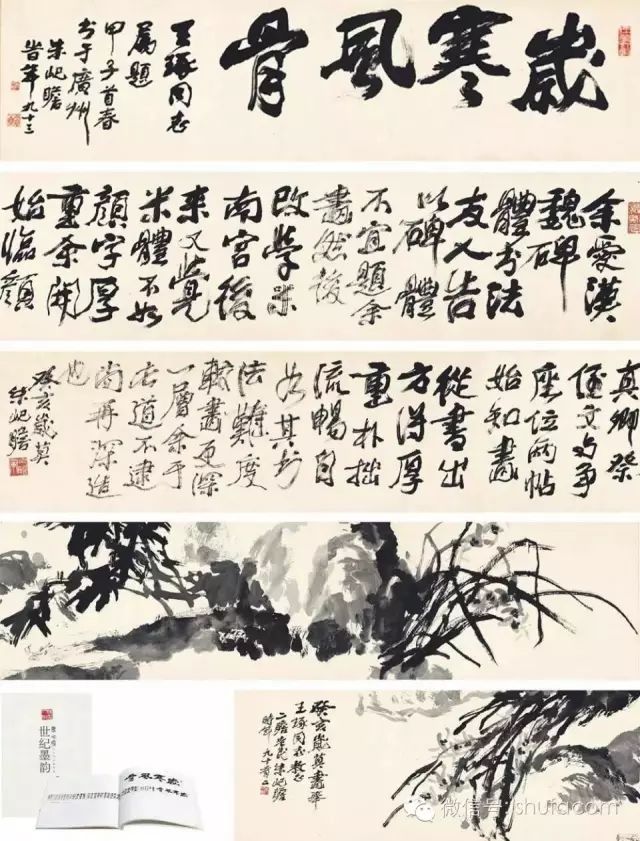 歲寒風骨
王琢同志
屬題
甲子首春
书于廣州
朱屺瞻
九十三
余愛漢
魏碑
體书法
友人告
以碑體
不宜題余
畫然後
改学米
南宫後
来又覺
米體不如
顔字厚
重余開
始临顔
真卿祭
侄文与争
座位两帖
始知畫
從書出
方得厚
重朴拙
流暢自
如其书
法難度
較畫更深
一層余于
此道不逮
尚再深造
也
癸亥歲莫
朱屺瞻
癸亥歲莫畫奉
王琢同志教正
二瞻老民朱屺瞻
時年九十有二
世纪墨韵
微信号: jshufacom